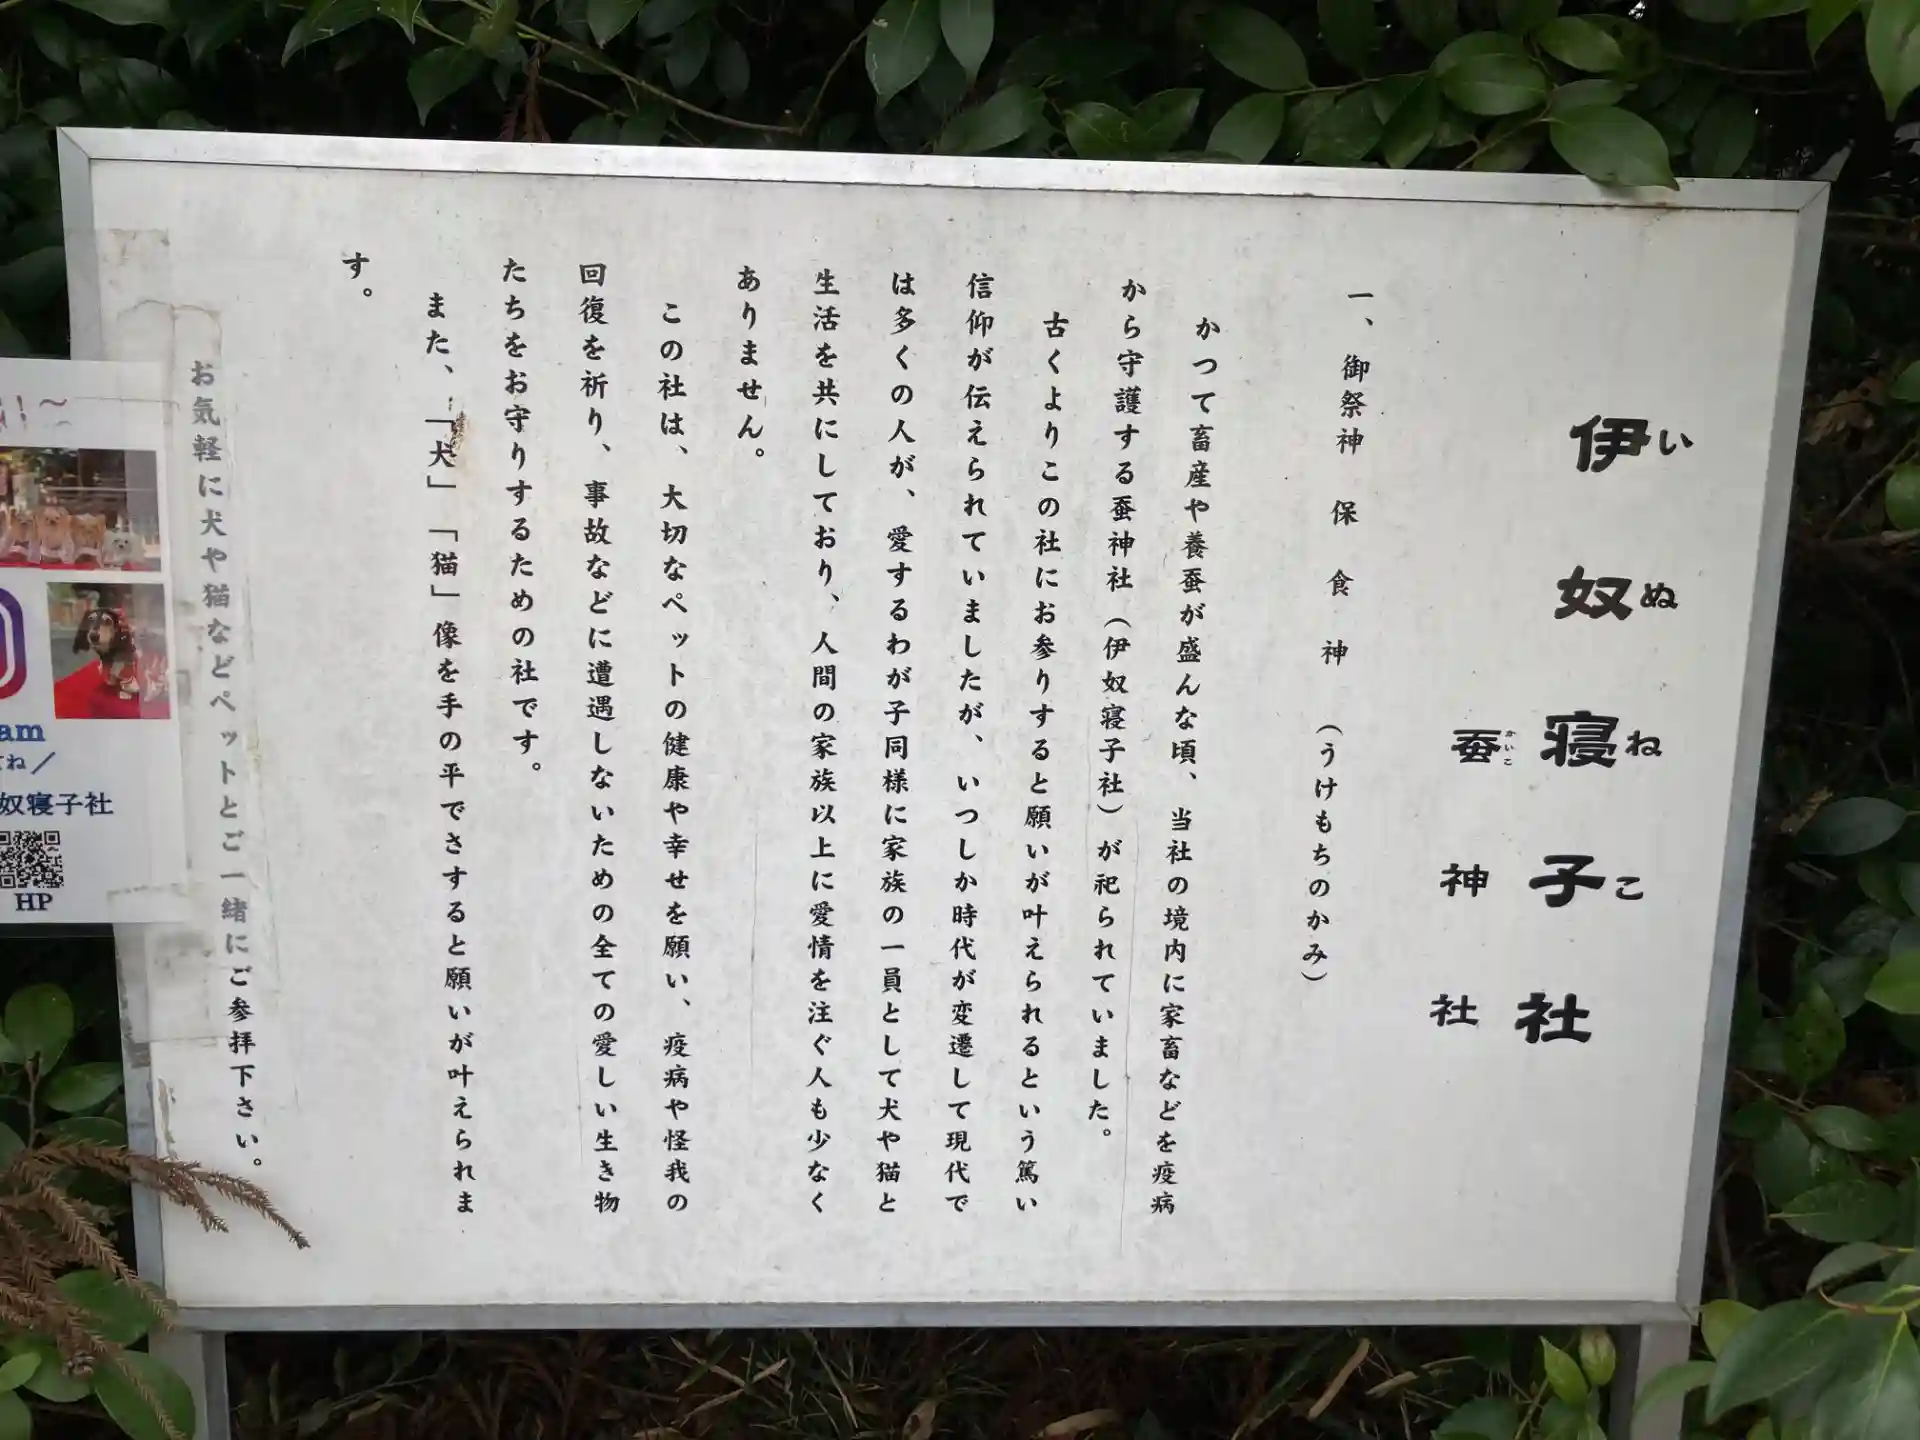 伊奴寝子社
いぬねこ
蚕神社
かいこ
一、御祭神 保食神 (うけもちのかみ)
かつて畜産や養蚕が盛んな頃、当社の境内に家畜などを疫病
から守護する蚕神社(伊奴寝子社)が祀られていました。
古くよりこの社にお参りすると願いが叶えられるという篤い
信仰が伝えられていましたが、いつしか時代が変遷して現代で
は多くの人が、愛するわが子同様に家族の一員として犬や猫と
生活を共にしており、人間の家族以上に愛情を注ぐ人も少なく
ありません。
この社は、大切なペットの健康や幸せを願い、疫病や怪我の
回復を祈り、事故などに遭遇しないための全ての愛しい生き物
たちをお守りするための社です。
また、「犬」「猫」像を手の平でさすると願いが叶えられま
す。
お気軽に犬や猫などペットとご一緒にご参拝下さい。
am
ね/
奴寝子社
HP